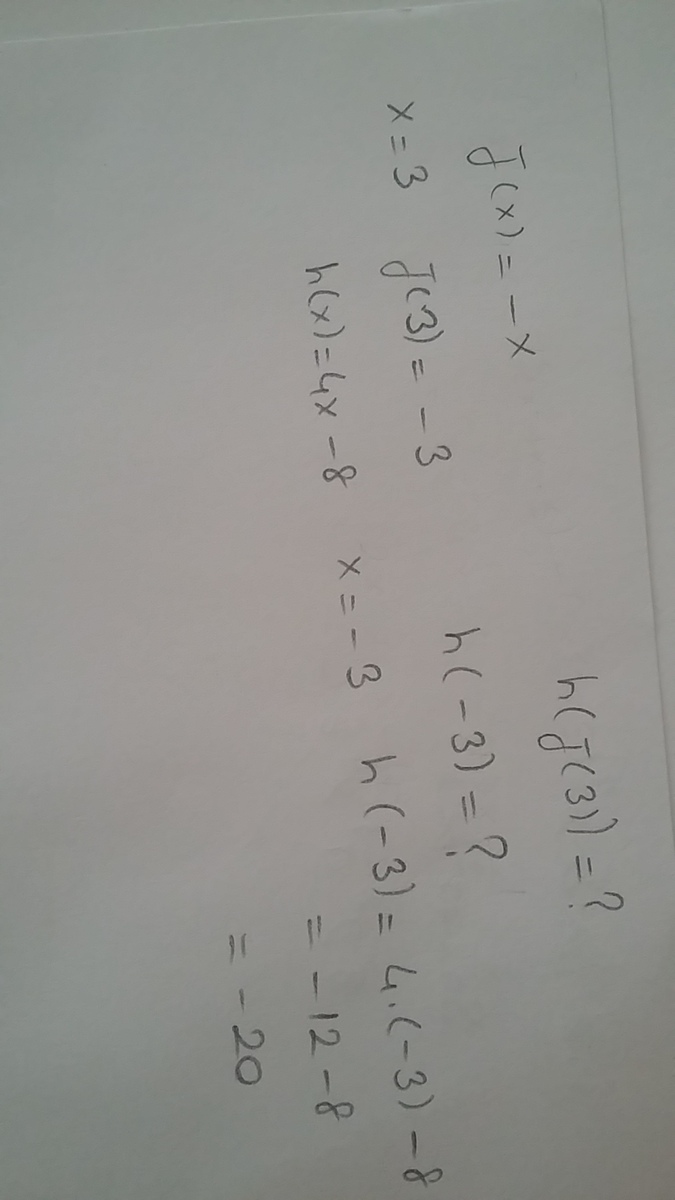 J(x) = -x
h(J(3)) = ?
x = 3 J(3) = -3
h(-3) = ?
h(x) = 4x - 8 x = -3 h(-3) = 4.(-3) - 8
= -12 - 8
= -20